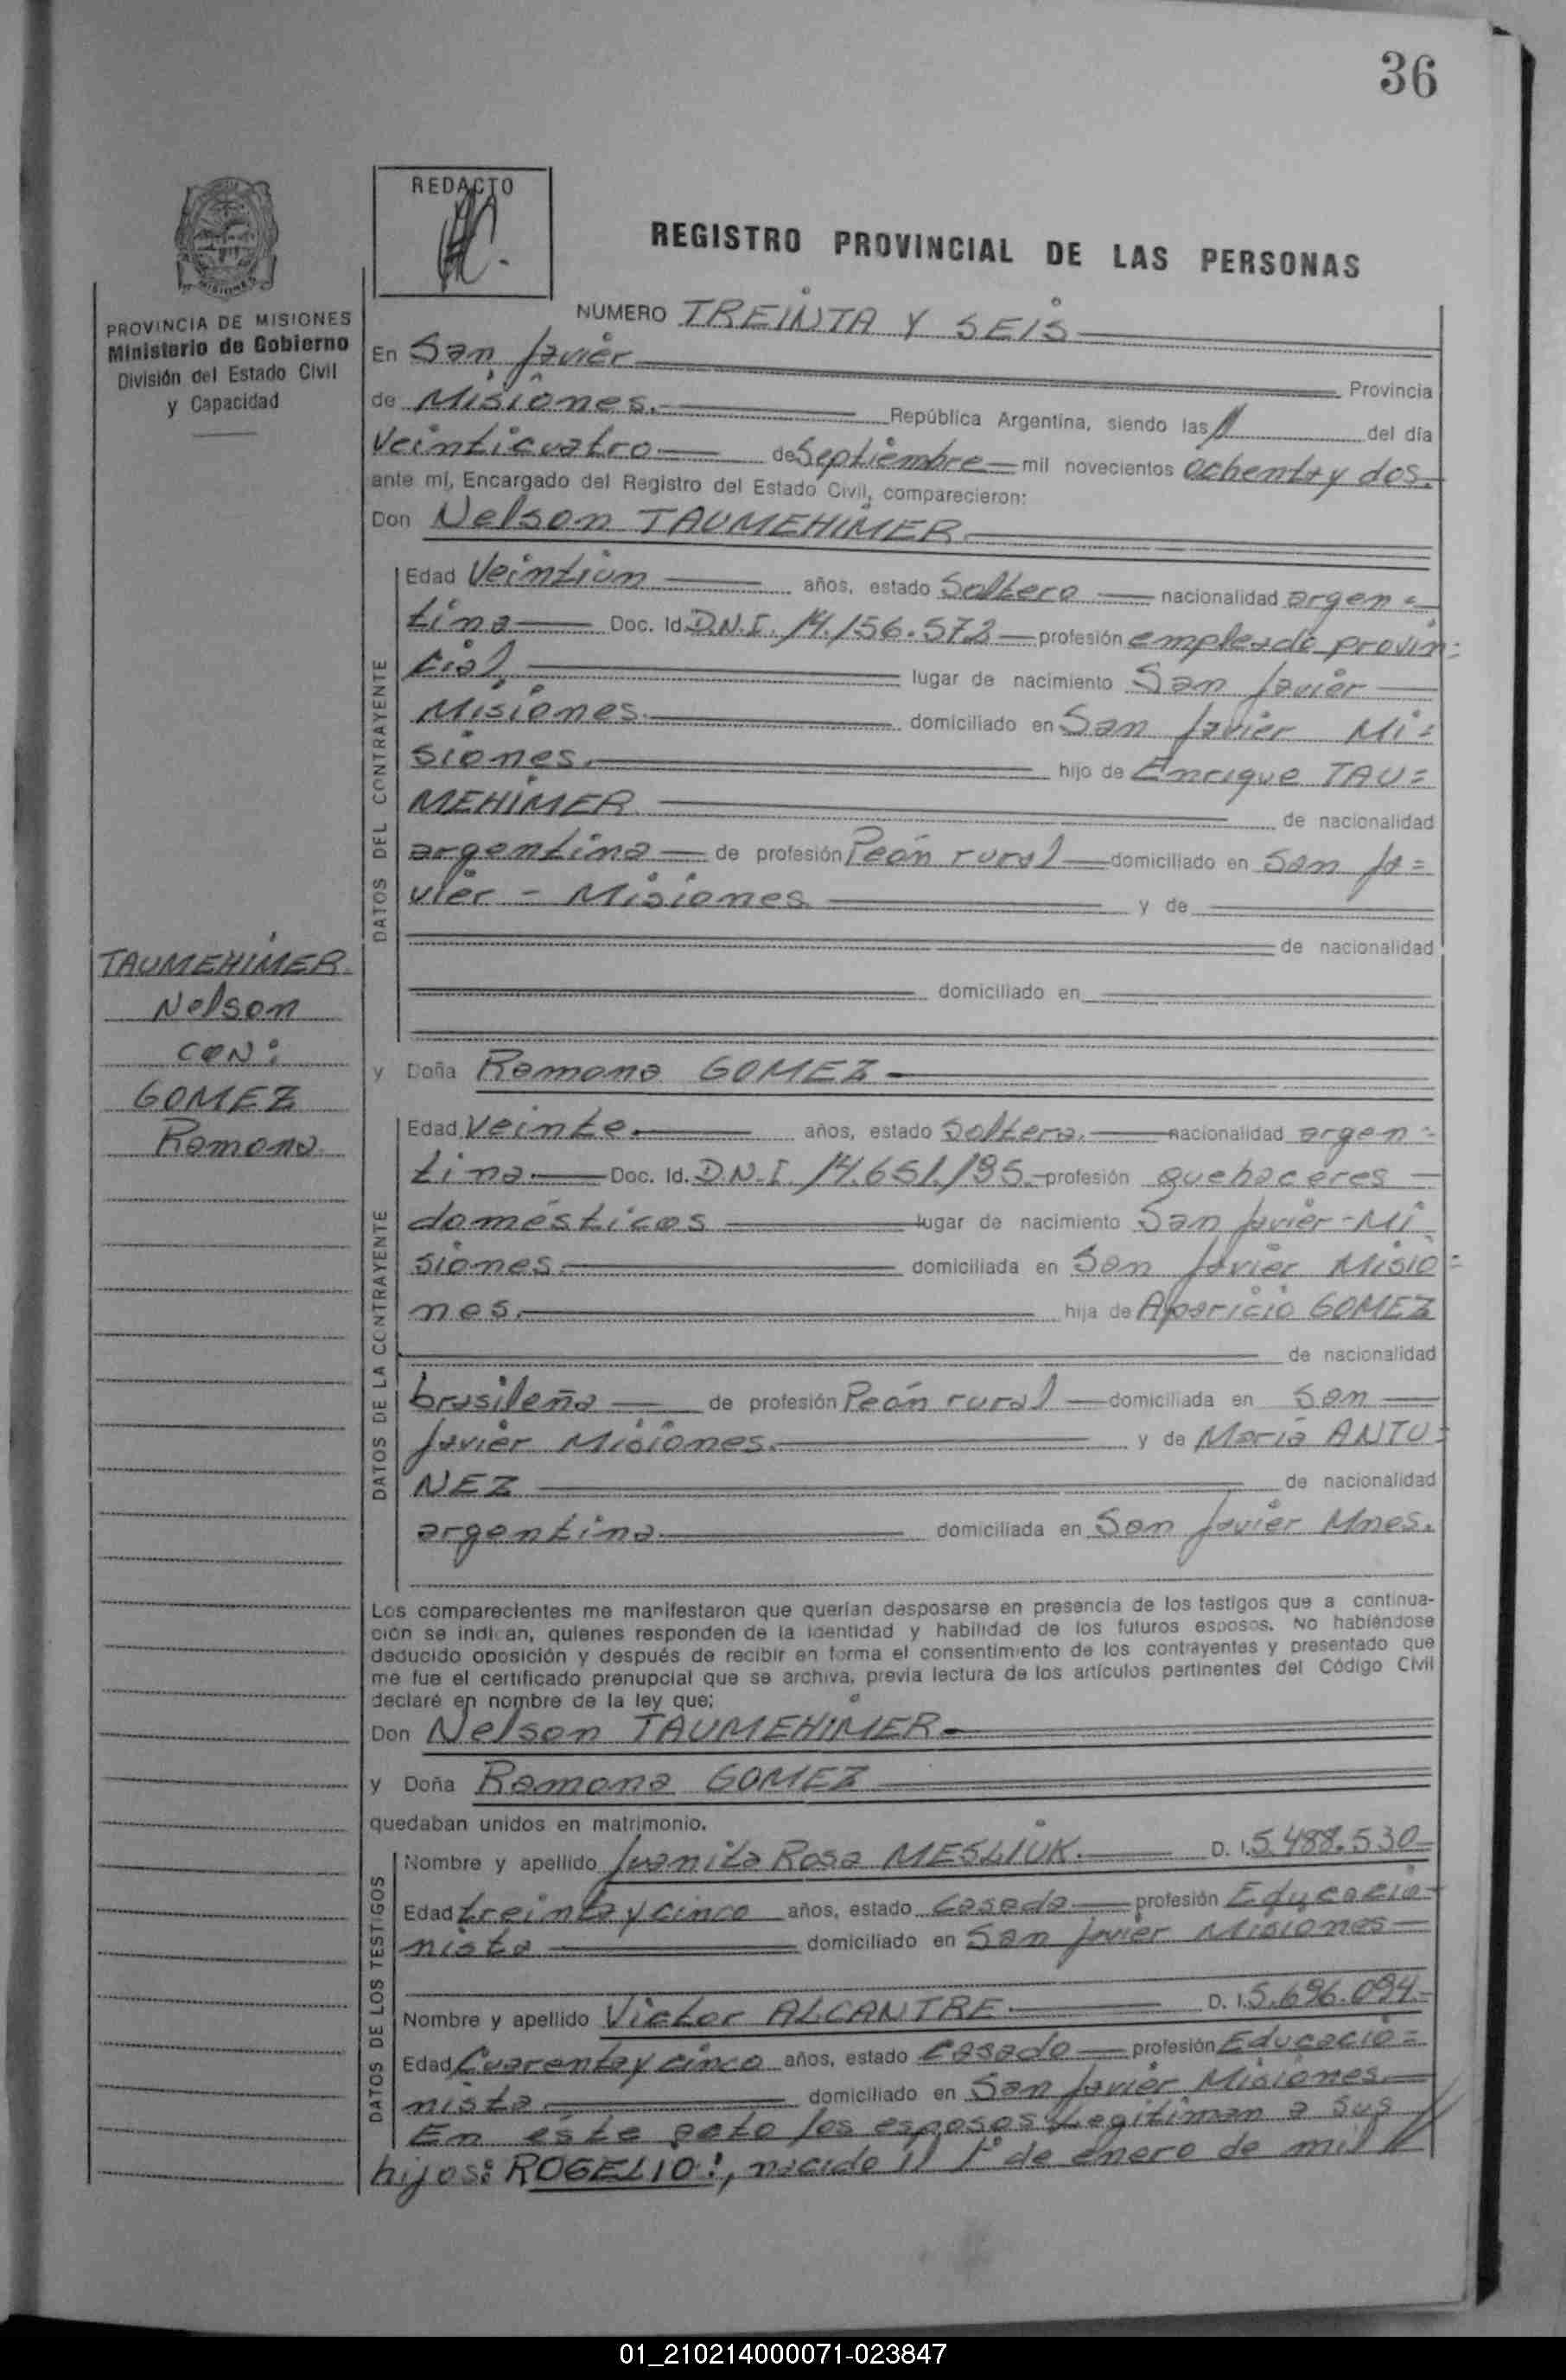 36
REDACTO
REGISTRO PROVINCIAL DE LAS PERSONAS
PROVINCIA DE MISIONES
Ministerio de Gobierno
División del Estado Civil
y Capacidad
NUMERO TREINTA Y SEIS
En San Javier Provincia
de Misiones. República Argentina, siendo las del día
Veinticuatro de Septiembre mil novecientos ochenta y dos.
ante mí, Encargado del Registro del Estado Civil, comparecieron:
Don Nelson TAUMEHIMER
DATOS DEL CONTRAYENTE
Edad Veintiun años, estado Soltero nacionalidad argen=
tina Doc. Id. D.N.I. 14.156.572 profesión empleado provin=
cial lugar de nacimiento San Javier
Misiones domiciliado en San Javier Mi=
siones. hijo de Enrique TAU=
MEHIMER de nacionalidad
argentina de profesión Peón rural domiciliado en San Ja=
vier - Misiones y de
de nacionalidad
domiciliado en
TAUMEHIMER
Nelson
CON:
GOMEZ
Ramona
y Doña Ramona GOMEZ
DATOS DE LA CONTRAYENTE
Edad Veinte. años, estado Soltera. nacionalidad argen=
tina. Doc. Id. D.N.I 14.651.195 profesión quehaceres
domésticos lugar de nacimiento San Javier - Mi
siones. domiciliada en San Javier Misio=
nes. hija de Aparicio GOMEZ
de nacionalidad
brasileña de profesión Peón rural domiciliada en San
Javier Misiones. y de Maria ANTU=
NEZ de nacionalidad
argentina. domiciliada en San Javier Mnes.
Los comparecientes me manifestaron que querían desposarse en presencia de los testigos que a continua-
ción se indican, quienes responden de la identidad y habilidad de los futuros esposos. No habiéndose
deducido oposición y después de recibir en forma el consentimiento de los contrayentes y presentado que
me fue el certificado prenupcial que se archiva, previa lectura de los artículos pertinentes del Código Civil
declaré en nombre de la ley que:
Don Nelson TAUMEHIMER
y Doña Ramona GOMEZ
quedaban unidos en matrimonio.
DATOS DE LOS TESTIGOS
Nombre y apellido Juanita Rosa MESLIUK. D. I. 5.488.530
Edad treinta y cinco años, estado casada profesión Educacio-
nista domiciliado en San Javier Misiones
Nombre y apellido Victor ALCANTRE D. I. 5.696.094
Edad Cuarenta y cinco años, estado Casado profesión Educacio=
nista domiciliado en San Javier Misiones
En éste acto los esposos Legitiman a sus
hijos: ROGELIO!, nacido el 1° de enero de mil
01_210214000071-023847